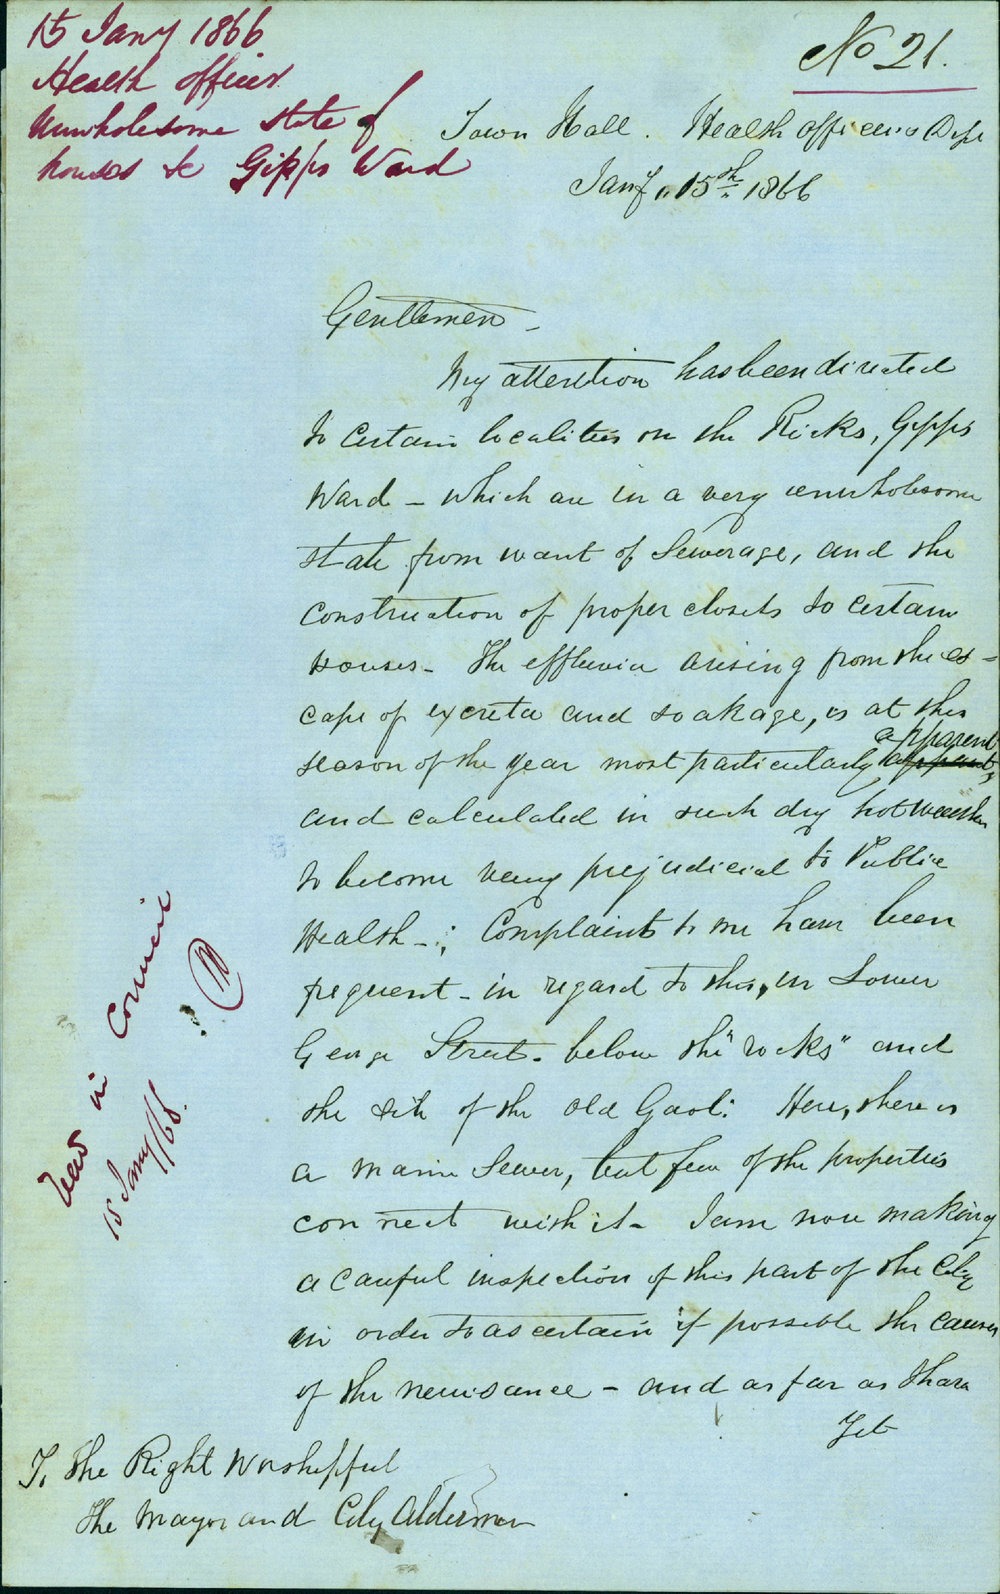 15 Jany 1866
Health officer
Unwholesome state of
houses &c Gipps Ward
No 21.
Town Hall. Health officer's Dept
Jany 15th 1866
Gentlemen -
My attention has been directed
to certain localities on the Rocks, Gipps
Ward - which are in a very unwholesome
state from want of Sewerage, and the
construction of proper closets to certain
Houses - The effluvia arising from the es-
cape of excreta and soakage, is at this
season of the year most particularly apparent
and calculated in such dry hot weather
to become very prejudicial to Public
Health -; Complaints to me have been
frequent - in regard to this, in Lower
George Street - below the "rocks" and
the site of the Old Gaol: Here, there is
a main Sewer, but few of the properties
connect with it - I am now making
a careful inspection of this part of the City
in order to ascertain if possible the causes
of the neuisance - and as far as I have
Yet
To The Right Worshipful
The Mayor and City Aldermen
Read in Council
15 Jany/66.